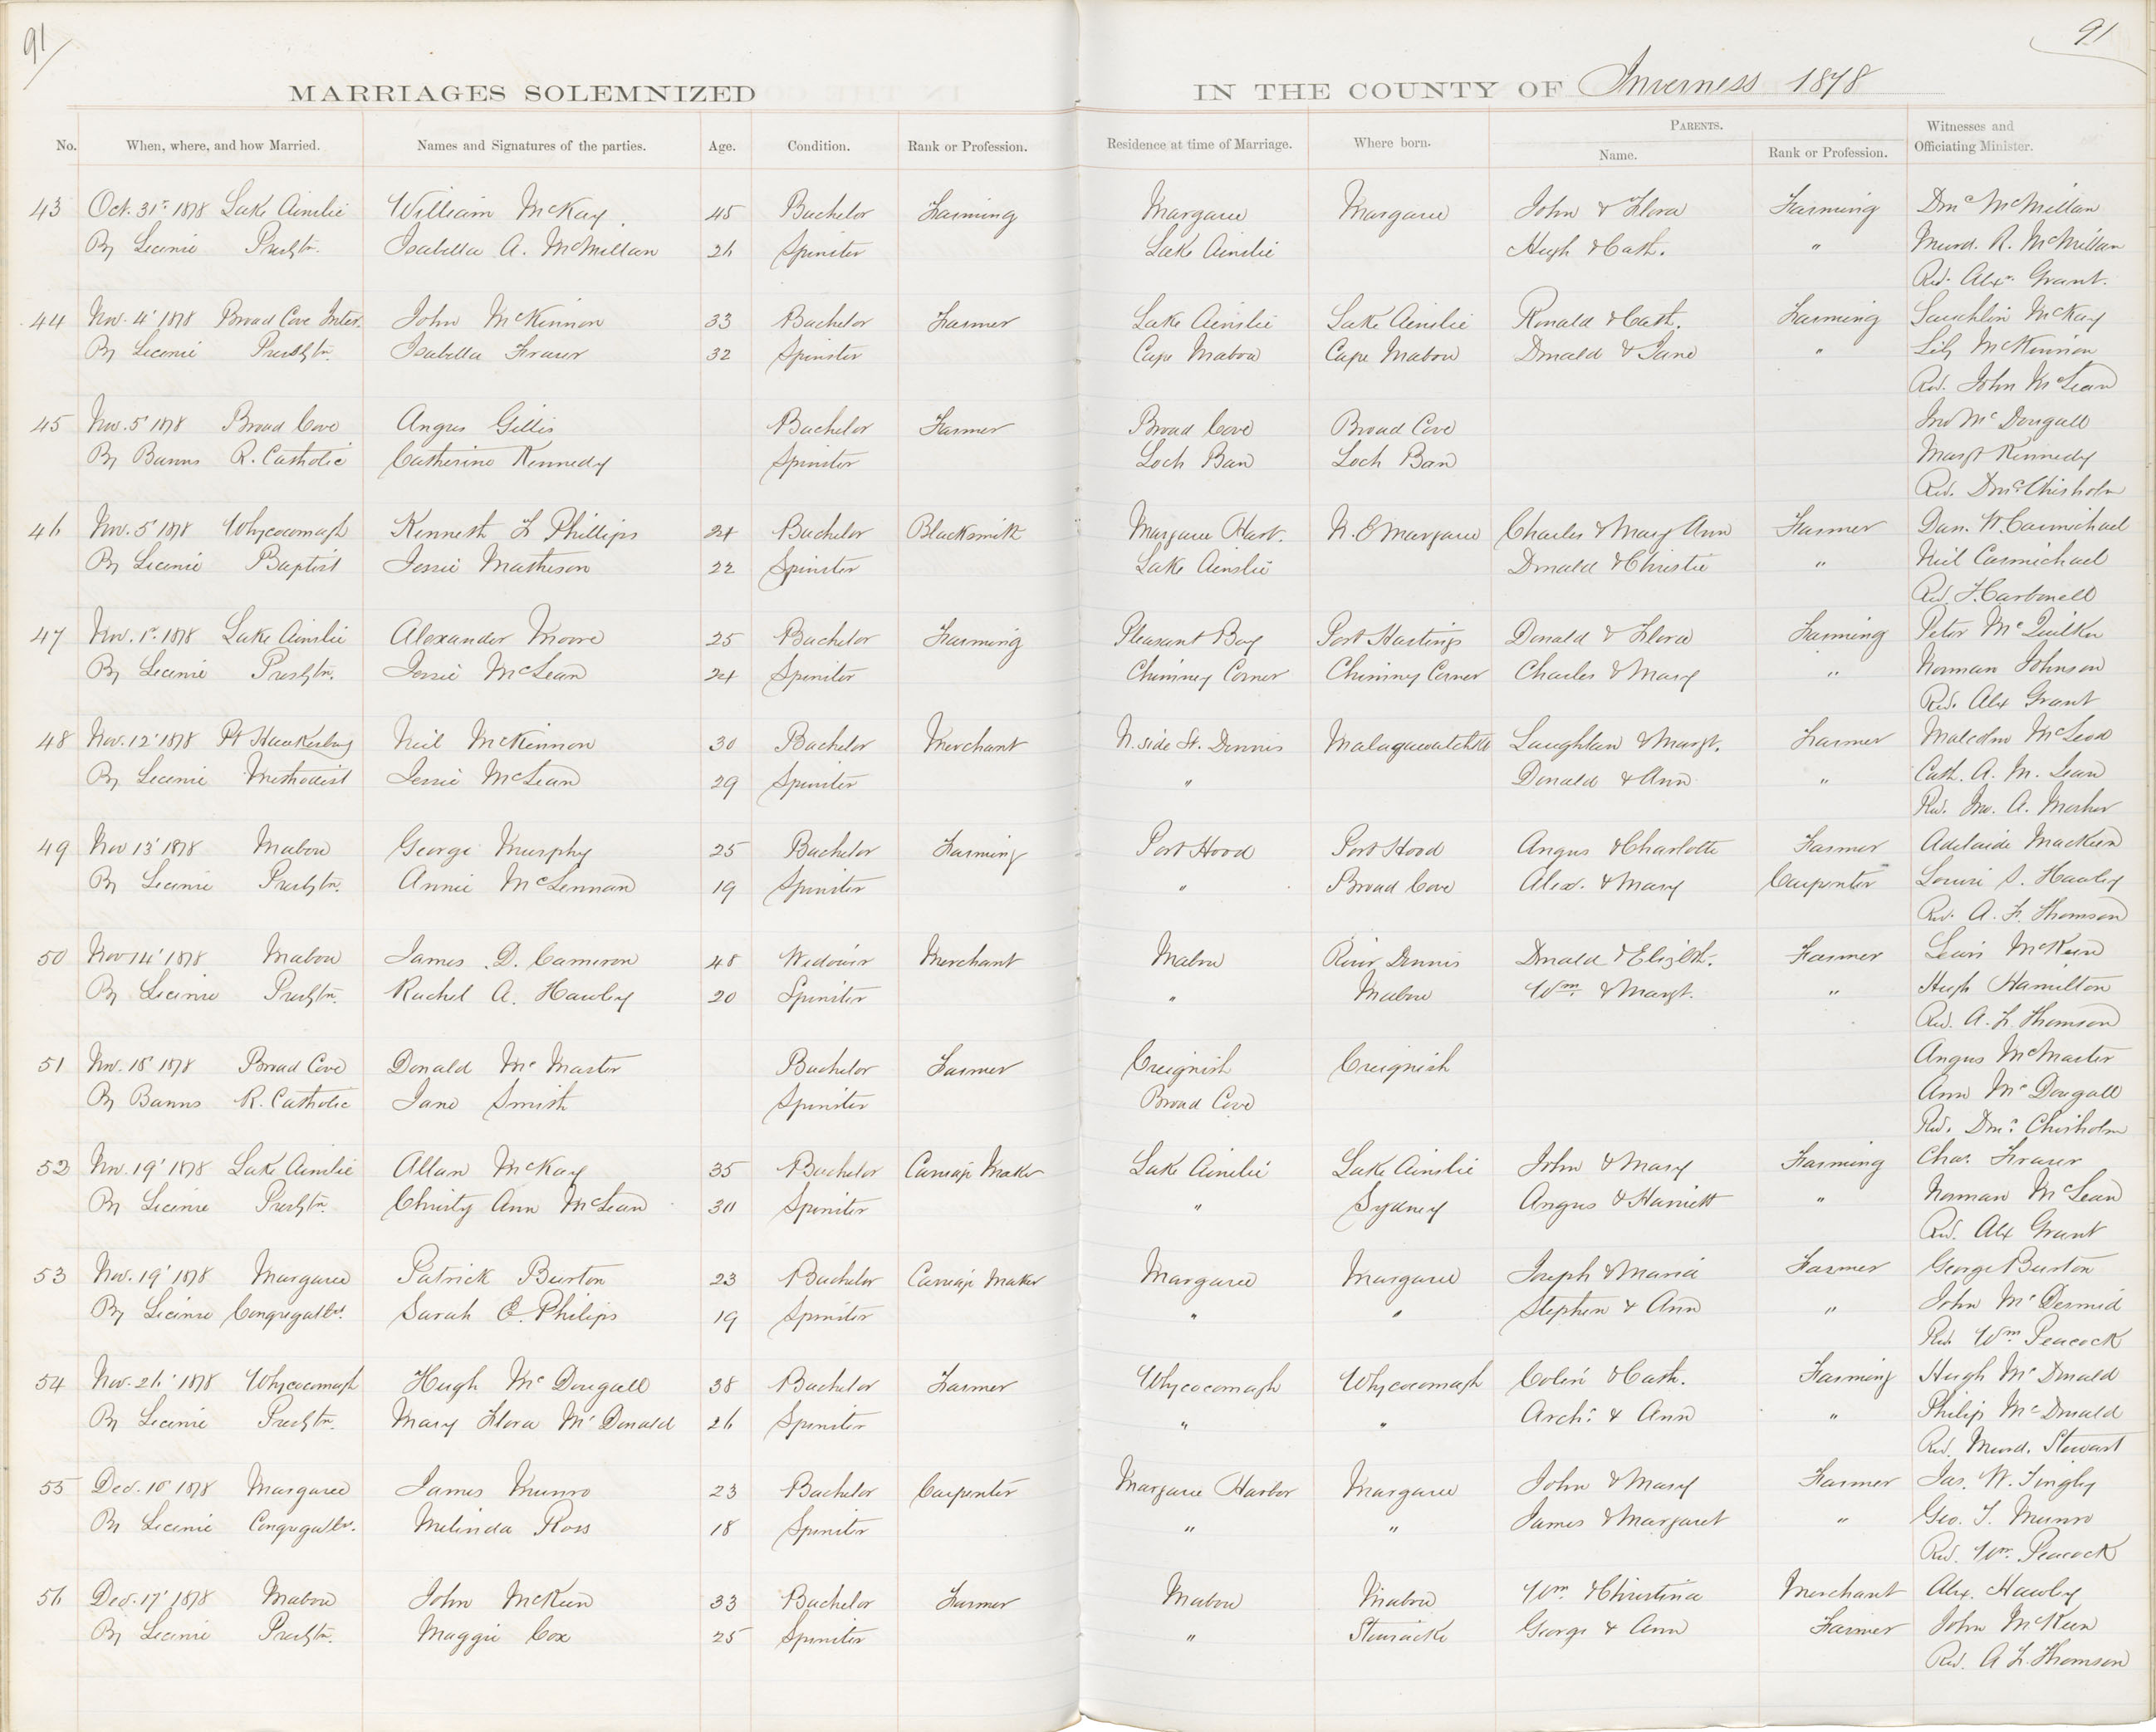 91
91
MARRIAGES SOLEMNIZED IN THE COUNTY OF Inverness 1878
No. When, where, and how Married. Names and Signatures of the parties. Age. Condition. Rank or Profession. Residence at time of Marriage. Where born. PARENTS. Name. Rank or Profession. Witnesses and Officiating Minister.
43 Oct. 31st 1878 Lake Ainslie William McKay 45 Bachelor Farming Margaree Margaree John & Flora Farming Dnc McMillan
By License Presbtn. Isabella A. McMillan 26 Spinster Lake Ainslie Hugh & Cath. " Murd. R. McMillan
Rev. Alexr. Grant.
44 Nov. 4' 1878 Broad Cove Inter. John McKinnon 33 Bachelor Farmer Lake Ainslie Lake Ainslie Ronald & Cath. Farming Lauchlin McKay
By License Presbtn. Isabella Fraser 32 Spinster Cape Mabou Cape Mabou Donald & Jane " Lily McKinnon
Rev. John McLean
45 Nov. 5' 1878 Broad Cove Angus Gillis Bachelor Farmer Broad Cove Broad Cove Jno McDougall
By Banns R. Catholic Catherine Kennedy Spinster Loch Ban Loch Ban Margt Kennedy
Rev. Dnc. Chisholm
46 Nov. 5' 1878 Whycocomagh Kenneth L Phillips 24 Bachelor Blacksmith Margaree Harb. N. E Margaree Charles & Mary Ann Farmer Dan. H. Carmichael
By License Baptist Jessie Matheson 22 Spinster Lake Ainslie Donald & Christie " Neil Carmichael
Rev. F. Carbonell
47 Nov. 1st 1878 Lake Ainslie Alexander Moore 25 Bachelor Farming Pleasant Bay Port Hastings Donald & Flora Farming Peter McQuilken
By License Presbtn. Jessie McLean 24 Spinster Chimney Corner Chimney Corner Charles & Mary " Norman Johnson
Rev. Alex Grant
48 Nov. 12' 1878 Pt Hawkesbury Neil McKinnon 30 Bachelor Merchant N. side St. Dennis Malagawatchtt Laughlan & Margt. Farmer Malcolm McLeod
By License Methodist Jessie McLean 29 Spinster " Donald & Ann " Cath. A. M. Lean
Rev. Jno. A. Mosher
49 Nov 13' 1878 Mabou George Murphy 25 Bachelor Farming Port Hood Port Hood Angus & Charlotte Farmer Adelaide MacKeen
By License Presbtn. Annie McLennan 19 Spinster " Broad Cove Alex. & Mary Carpenter Louise S. Hawley
Rev. A. F. Thomson
50 Nov 14' 1878 Mabou James D. Cameron 48 Widower Merchant Mabou River Dennis Donald & Elizbth. Farmer Lewis McKeen
By License Presbtn. Rachel A. Hawley 20 Spinster " Mabou Wm. & Margt. " Hugh Hamilton
Rev. A. F. Thomson
51 Nov. 18' 1878 Broad Cove Donald McMaster Bachelor Farmer Creignish Creignish Angus McMaster
By Banns R. Catholic Jane Smith Spinster Broad Cove Ann McDougall
Rev. Dnc. Chisholm
52 Nov. 19' 1878 Lake Ainslie Allan McKay 35 Bachelor Carriage Maker Lake Ainslie Lake Ainslie John & Mary Farming Chas. Fraser
By License Presbtn. Christy Ann McLean 30 Spinster " Sydney Angus & Harriett " Norman McLean
Rev. Alex Grant
53 Nov. 19' 1878 Margaree Patrick Burton 23 Bachelor Carriage Maker Margaree Margaree Joseph & Maria Farmer George Burton
By License Congregatlst. Sarah E. Philips 19 Spinster " " Stephen & Ann " John McDermid
Rev. Wm Peacock
54 Nov. 26' 1878 Whycocomagh Hugh McDougall 38 Bachelor Farmer Whycocomagh Whycocomagh Colin & Cath. Farming Hugh McDonald
By License Presbtn. Mary Flora McDonald 26 Spinster " " Archd. & Ann " Philip McDonald
Rev. Murd. Stewart
55 Dec. 10' 1878 Margaree James Munro 23 Bachelor Carpenter Margaree Harbor Margaree John & Mary Farmer Jas. W. Tingley
By License Congregatlst. Melinda Ross 18 Spinster " " James & Margaret " Geo. T. Munro
Rev. Wm. Peacock
56 Dec. 17' 1878 Mabou John McKeen 33 Bachelor Farmer Mabou Mabou Wm. & Christina Merchant Alex. Hawley
By License Presbtn. Maggie Cox 25 Spinster " Stewiacke George & Ann Farmer John McKeen
Rev. A F. Thomson